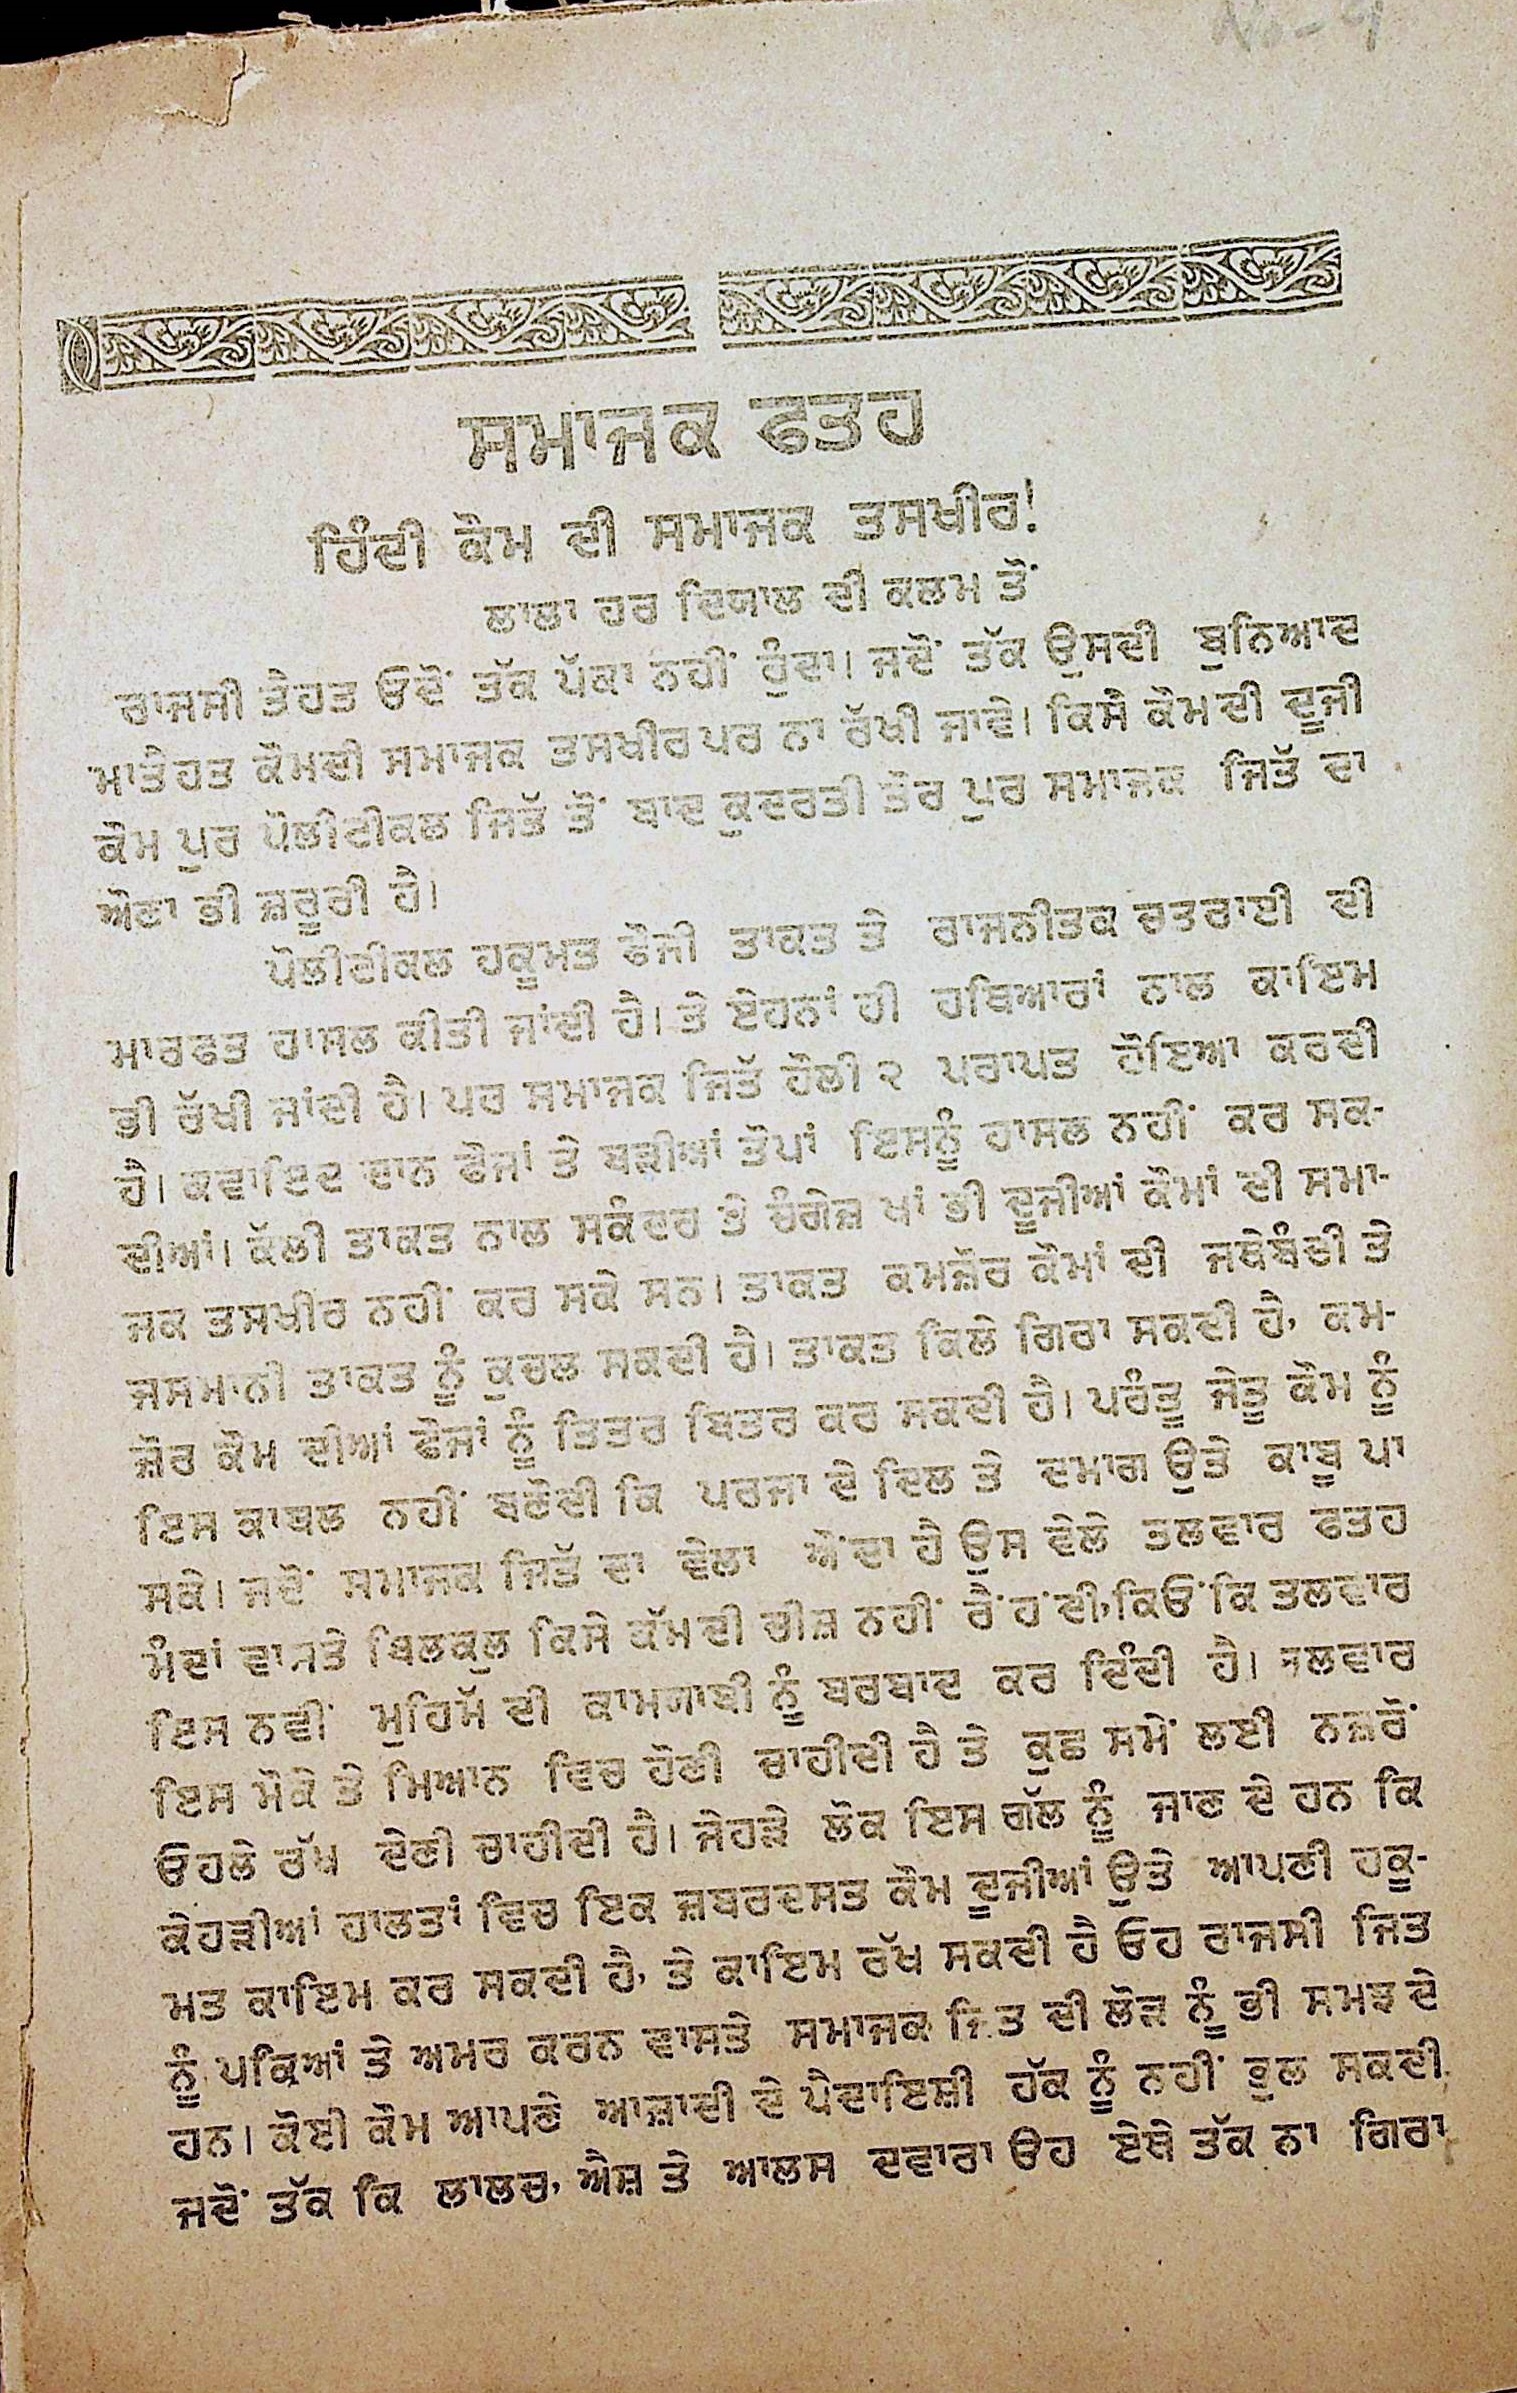 No-9
ਸਮਾਜਕ ਫਤਹ
ਹਿੰਦੀ ਕੌਮ ਦੀ ਸਮਾਜਕ ਤਸਖੀਰ!
ਲਾਲਾ ਹਰ ਦਿਯਾਲ ਦੀ ਕਲਮ ਤੋਂ
ਰਾਜਸੀ ਤੇਹਤ ਓਦੋਂ ਤੱਕ ਪੱਕਾ ਨਹੀਂ ਹੁੰਦਾ। ਜਦੋਂ ਤੱਕ ਉਸਦੀ ਬੁਨਿਆਦ
ਮਾਤੈਹਤ ਕੌਮਦੀ ਸਮਾਜਕ ਤਸਖੀਰ ਪਰ ਨਾ ਰੱਖੀ ਜਾਵੇ। ਕਿਸੇ ਕੌਮ ਦੀ ਦੂਜੀ
ਕੌਮ ਪੁਰ ਪੋਲੀਟੀਕਲ ਜਿਤੱ ਤੋਂ ਬਾਦ ਕੁਦਰਤੀ ਤੌਰ ਪੁਰ ਸਮਾਜਕ ਜਿਤੱ ਦਾ
ਔਣਾ ਭੀ ਜ਼ਰੂਰੀ ਹੈ।
ਪੋਲੀਟੀਕਲ ਹਕੂਮਤ ਫੌਜੀ ਤਾਕਤ ਤੇ ਰਾਜਨੀਤਕ ਚਤਰਾਈ ਦੀ
ਮਾਰਫਤ ਹਾਸਲ ਕੀਤੀ ਜਾਂਦੀ ਹੈ। ਤੇ ਏਹਨਾਂ ਹੀ ਹਥਿਆਰਾਂ ਨਾਲ ਕਾਇਮ
ਭੀ ਰੱਖੀ ਜਾਂਦੀ ਹੈ। ਪਰ ਸਮਾਜਕ ਜਿਤੱ ਹੌਲੀ ੨ ਪਰਾਪਤ ਹੋਇਆ ਕਰਦੀ
ਹੈ। ਕਵਾਇਦ ਦਾਨ ਫੌਜਾਂ ਤੇ ਬੜੀਆਂ ਤੋਪਾਂ ਇਸਨੂੰ ਹਾਸਲ ਨਹੀਂ ਕਰ ਸਕ-
ਦੀਆਂ। ਕੱਲੀ ਤਾਕਤ ਨਾਲ ਸਕੰਦਰ ਤੇ ਚੰਗੇਜ਼ ਖਾਂ ਭੀ ਦੂਜੀਆਂ ਕੌਮਾਂ ਦੀ ਸਮਾ-
ਜਕ ਤਸਖੀਰ ਨਹੀਂ ਕਰ ਸਕੇ ਸਨ। ਤਾਕਤ ਕਮਜ਼ੋਰ ਕੌਮਾਂ ਦੀ ਜਥੇਬੰਦੀ ਤੇ
ਜਸਮਾਨੀ ਤਾਕਤ ਨੂੰ ਕੁਚਲ ਸਕਦੀ ਹੈ। ਤਾਕਤ ਕਿਲੇ ਗਿਰਾ ਸਕਦੀ ਹੈ, ਕਮ-
ਜ਼ੋਰ ਕੌਮ ਦੀਆਂ ਫੌਜਾਂ ਨੂੰ ਤਿਤਰ ਬਿਤਰ ਕਰ ਸਕਦੀ ਹੈ। ਪਰੰਤੂ ਜੇਤੂ ਕੌਮ ਨੂੰ
ਇਸ ਕਾਬਲ ਨਹੀਂ ਬਣੌਦੀ ਕਿ ਪਰਜਾ ਦੇ ਦਿਲ ਤੇ ਦਮਾਗ ਉਤੇ ਕਾਬੂ ਪਾ
ਸਕੇ। ਜਦੋਂ ਸਮਾਜਕ ਜਿਤੱ ਦਾ ਵੇਲਾ ਔਂਦਾ ਹੈ ਉਸ ਵੇਲੇ ਤਲਵਾਰ ਫਤਹ
ਮੰਦਾਂ ਵਾਸਤੇ ਬਿਲਕੁਲ ਕਿਸੇ ਕੱਮਦੀ ਚੀਜ਼ ਨਹੀਂ ਰੈਂਹਦੀ, ਕਿਓਂਕਿ ਤਲਵਾਰ
ਇਸ ਨਵੀਂ ਮੁਹਿਮੱ ਦੀ ਕਾਮਯਾਬੀ ਨੂੰ ਬਰਬਾਦ ਕਰ ਦਿੰਦੀ ਹੈ। ਤਲਵਾਰ
ਇਸ ਮੌਕੇ ਤੇ ਮਿਆਨ ਵਿਚ ਹੋਣੀ ਚਾਹੀਦੀ ਹੈ ਤੇ ਕੁਛ ਸਮੇਂ ਲਈ ਨਜ਼ਰੋਂ
ਓਹਲੇ ਰੱਖ ਦੇਣੀ ਚਾਹੀਦੀ ਹੈ। ਜੇਹੜੇ ਲੋਕ ਇਸ ਗੱਲ ਨੂੰ ਜਾਣ ਦੇ ਹਨ ਕਿ
ਕੇਹੜੀਆਂ ਹਾਲਤਾਂ ਵਿਚ ਇਕ ਜ਼ਬਰਦਸਤ ਕੌਮ ਦੂਜੀਆਂ ਉਤੇ ਆਪਣੀ ਹਕੂ-
ਮਤ ਕਾਇਮ ਕਰ ਸਕਦੀ ਹੈ, ਤੇ ਕਾਇਮ ਰੱਖ ਸਕਦੀ ਹੈ ਓਹ ਰਾਜਸੀ ਜਿਤ
ਨੂੰ ਪਕਿਆਂ ਤੇ ਅਮਰ ਕਰਨ ਵਾਸਤੇ ਸਮਾਜਕ ਜਿਤ ਦੀ ਲੋੜ ਨੂੰ ਭੀ ਸਮਝ ਦੇ
ਹਨ। ਕੋਈ ਕੌਮ ਆਪਣੇ ਆਜ਼ਾਦੀ ਦੇ ਪੈਦਾਇਸ਼ੀ ਹੱਕ ਨੂੰ ਨਹੀਂ ਭੁਲ ਸਕਦੀ
ਜਦੋਂ ਤੱਕ ਕਿ ਲਾਲਚ, ਐਸ਼ ਤੇ ਆਲਸ ਦਵਾਰਾ ਓਹ ਏਥੇ ਤੱਕ ਨਾ ਗਿਰਾ